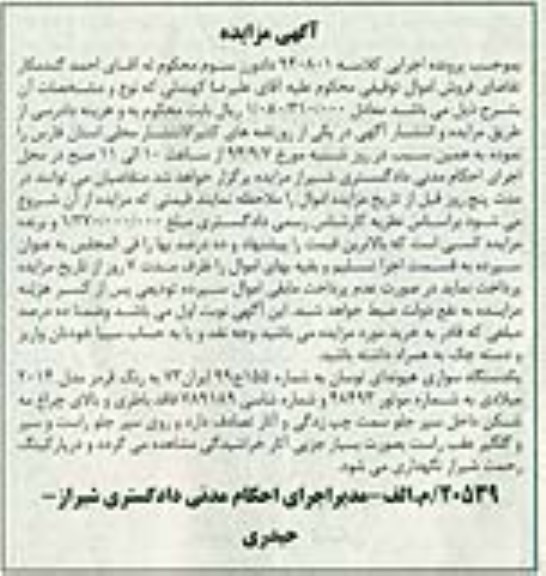 آگهی مزایده
بموجب پرونده اجرایی کلاسه ۹۴۰۸۰۱ دادورز سوم محکوم له آقای احمد گندمکار
تقاضای فروش اموال توقیفی محکوم علیه آقای علیرضا کهنسالی که نوع و مشخصات آن
بشرح ذیل می باشد معادل ۱/۰۸۰/۳۱۰/۰۰۰ ریال بابت محکوم به و هزینه دادرسی از
طریق مزایده و انتشار آگهی در یکی از روزنامه های کثیرالانتشار محلی استان فارس را
نموده به همین سبب در روز شنبه مورخ ۹۴/۹/۷ از ساعت ۱۰ الی ۱۱ صبح در محل
اجرای احکام مدنی دادگستری شیراز مزایده برگزار خواهد شد متقاضیان می توانند در
مدت پنج روز قبل از تاریخ مزایده اموال را ملاحظه نمایند قیمتی که مزایده از آن شروع
می شود براساس نظریه کارشناس رسمی دادگستری مبلغ ۱/۳۷۰/۰۰۰/۰۰۰ و برنده
مزایده کسی است که بالاترین قیمت را پیشنهاد و ده درصد بها را فی المجلس به عنوان
سپرده به قسمت اجرا تسلیم و بقیه بهای اموال را ظرف مدت روز از تاریخ مزایده
پرداخت نماید در صورت عدم پرداخت مابقی اموال سپرده تودیعی پس از کسر هزینه
مزایده به نفع دولت ضبط خواهد شد. این آگهی نوبت اول می باشد وضمنا ده درصد
مبلغی که قادر به خرید مورد مزایده می باشید وجه نقد و یا به حساب سیبا خودتان واریز
و دسته چک به همراه داشته باشید
یکدستگاه سواری هیوندای توسان به شماره ۱۵۵ج۹۹ ایران۷۳ به رنگ قرمز مدل ۲۰۱۴
میلادی به شماره موتور ۴۸۴۹۳ و شماره شاسی ۷۸۹۱۸۹ فاقد باطری و بالای چراغ مه
شکن داخل سپر جلو سمت چپ زدگی و آثار تصادف دارد و روی سپر جلو راست و سپر
و گلگیر عقب راست بصورت بسیار جزیی آثار خراشیدگی مشاهده می گردد و درپارکینگ
رحمت شیراز نگهداری می شود.
۲۰۵۳۹/م.الف-مدیراجرای احکام مدنی دادگستری شیراز-
حیدری